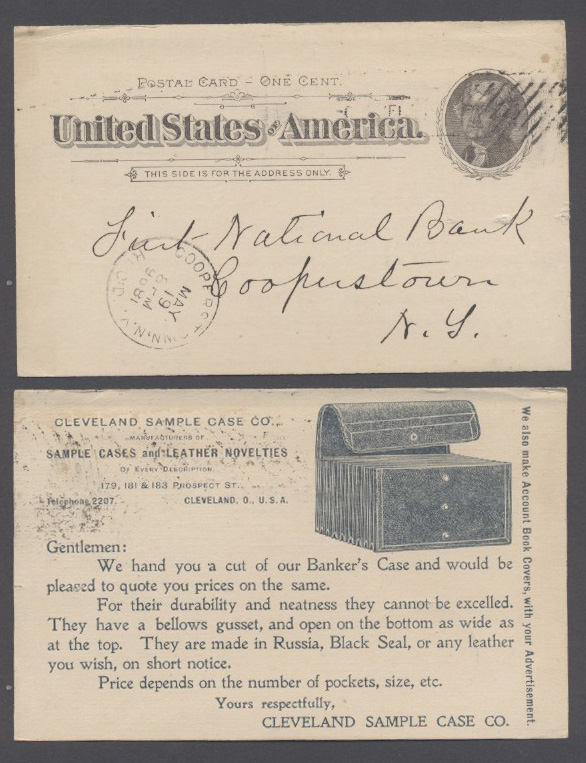 POSTAL CARD - ONE CENT.
United States of America.
THIS SIDE IS FOR THE ADDRESS ONLY.
First National Bank
Cooperstown
N.Y.
MAY
19
CLEVELAND SAMPLE CASE CO.,
MANUFACTURERS OF
SAMPLE CASES and LEATHER NOVELTIES
OF EVERY DESCRIPTION
179, 181 & 183 PROSPECT ST.,
Telephone 2207. CLEVELAND, O., U. S. A.
Gentlemen:
We hand you a cut of our Banker's Case and would be
pleased to quote you prices on the same.
For their durability and neatness they cannot be excelled.
They have a bellows gusset, and open on the bottom as wide as
at the top. They are made in Russia, Black Seal, or any leather
you wish, on short notice.
Price depends on the number of pockets, size, etc.
Yours respectfully,
CLEVELAND SAMPLE CASE CO.
We also make Account Book Covers, with your Advertisement.